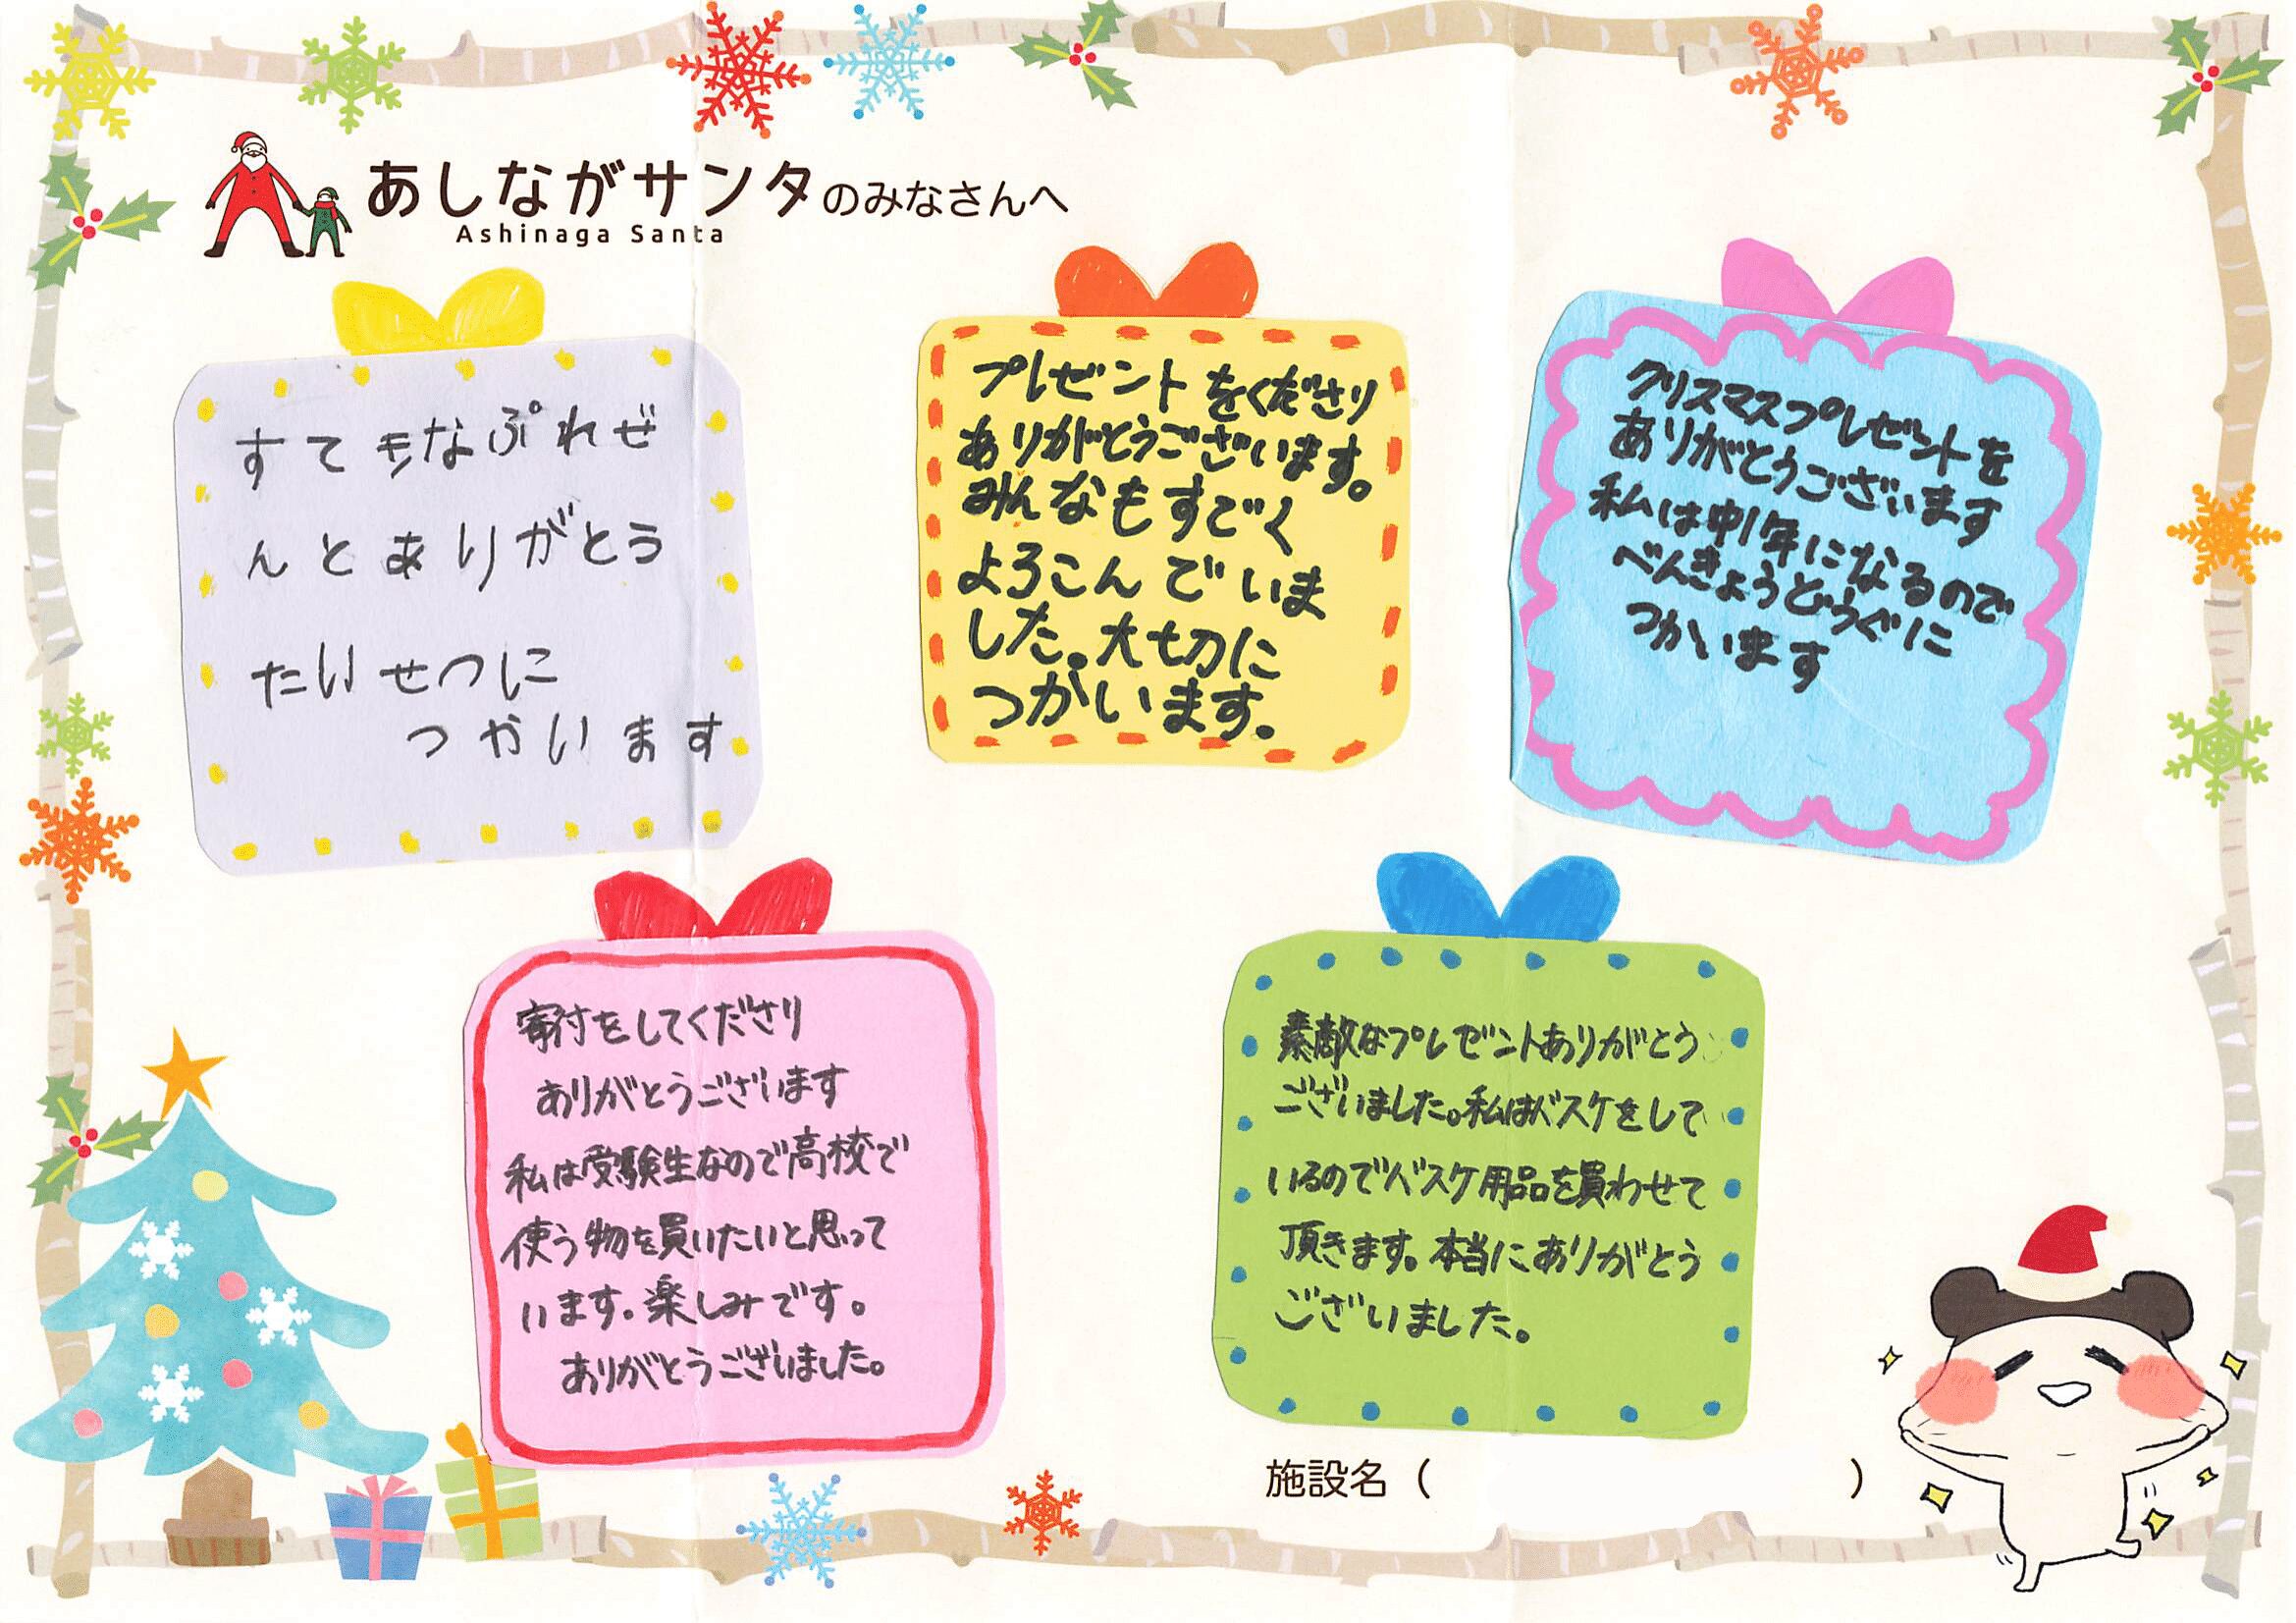 あしながサンタのみなさんへ
Ashinaga Santa
すてきなぷれぜ
んとありがとう
たいせつに
つかいます
プレゼントをくださり
ありがとうございます。
みんなもすごく
よろこんでいま
した。大切に
つかいます。
クリスマスプレゼントを
ありがとうございます
私は中1年になるので
べんきょうどうぐに
つかいます
寄付をしてくださり
ありがとうございます
私は受験生なので高校で
使う物を買いたいと思って
います。楽しみです。
ありがとうございました。
素敵なプレゼントありがとう
ございました。私はバスケをして
いるのでバスケ用品を買わせて
頂きます。本当にありがとう
ございました。
施設名（　　　）